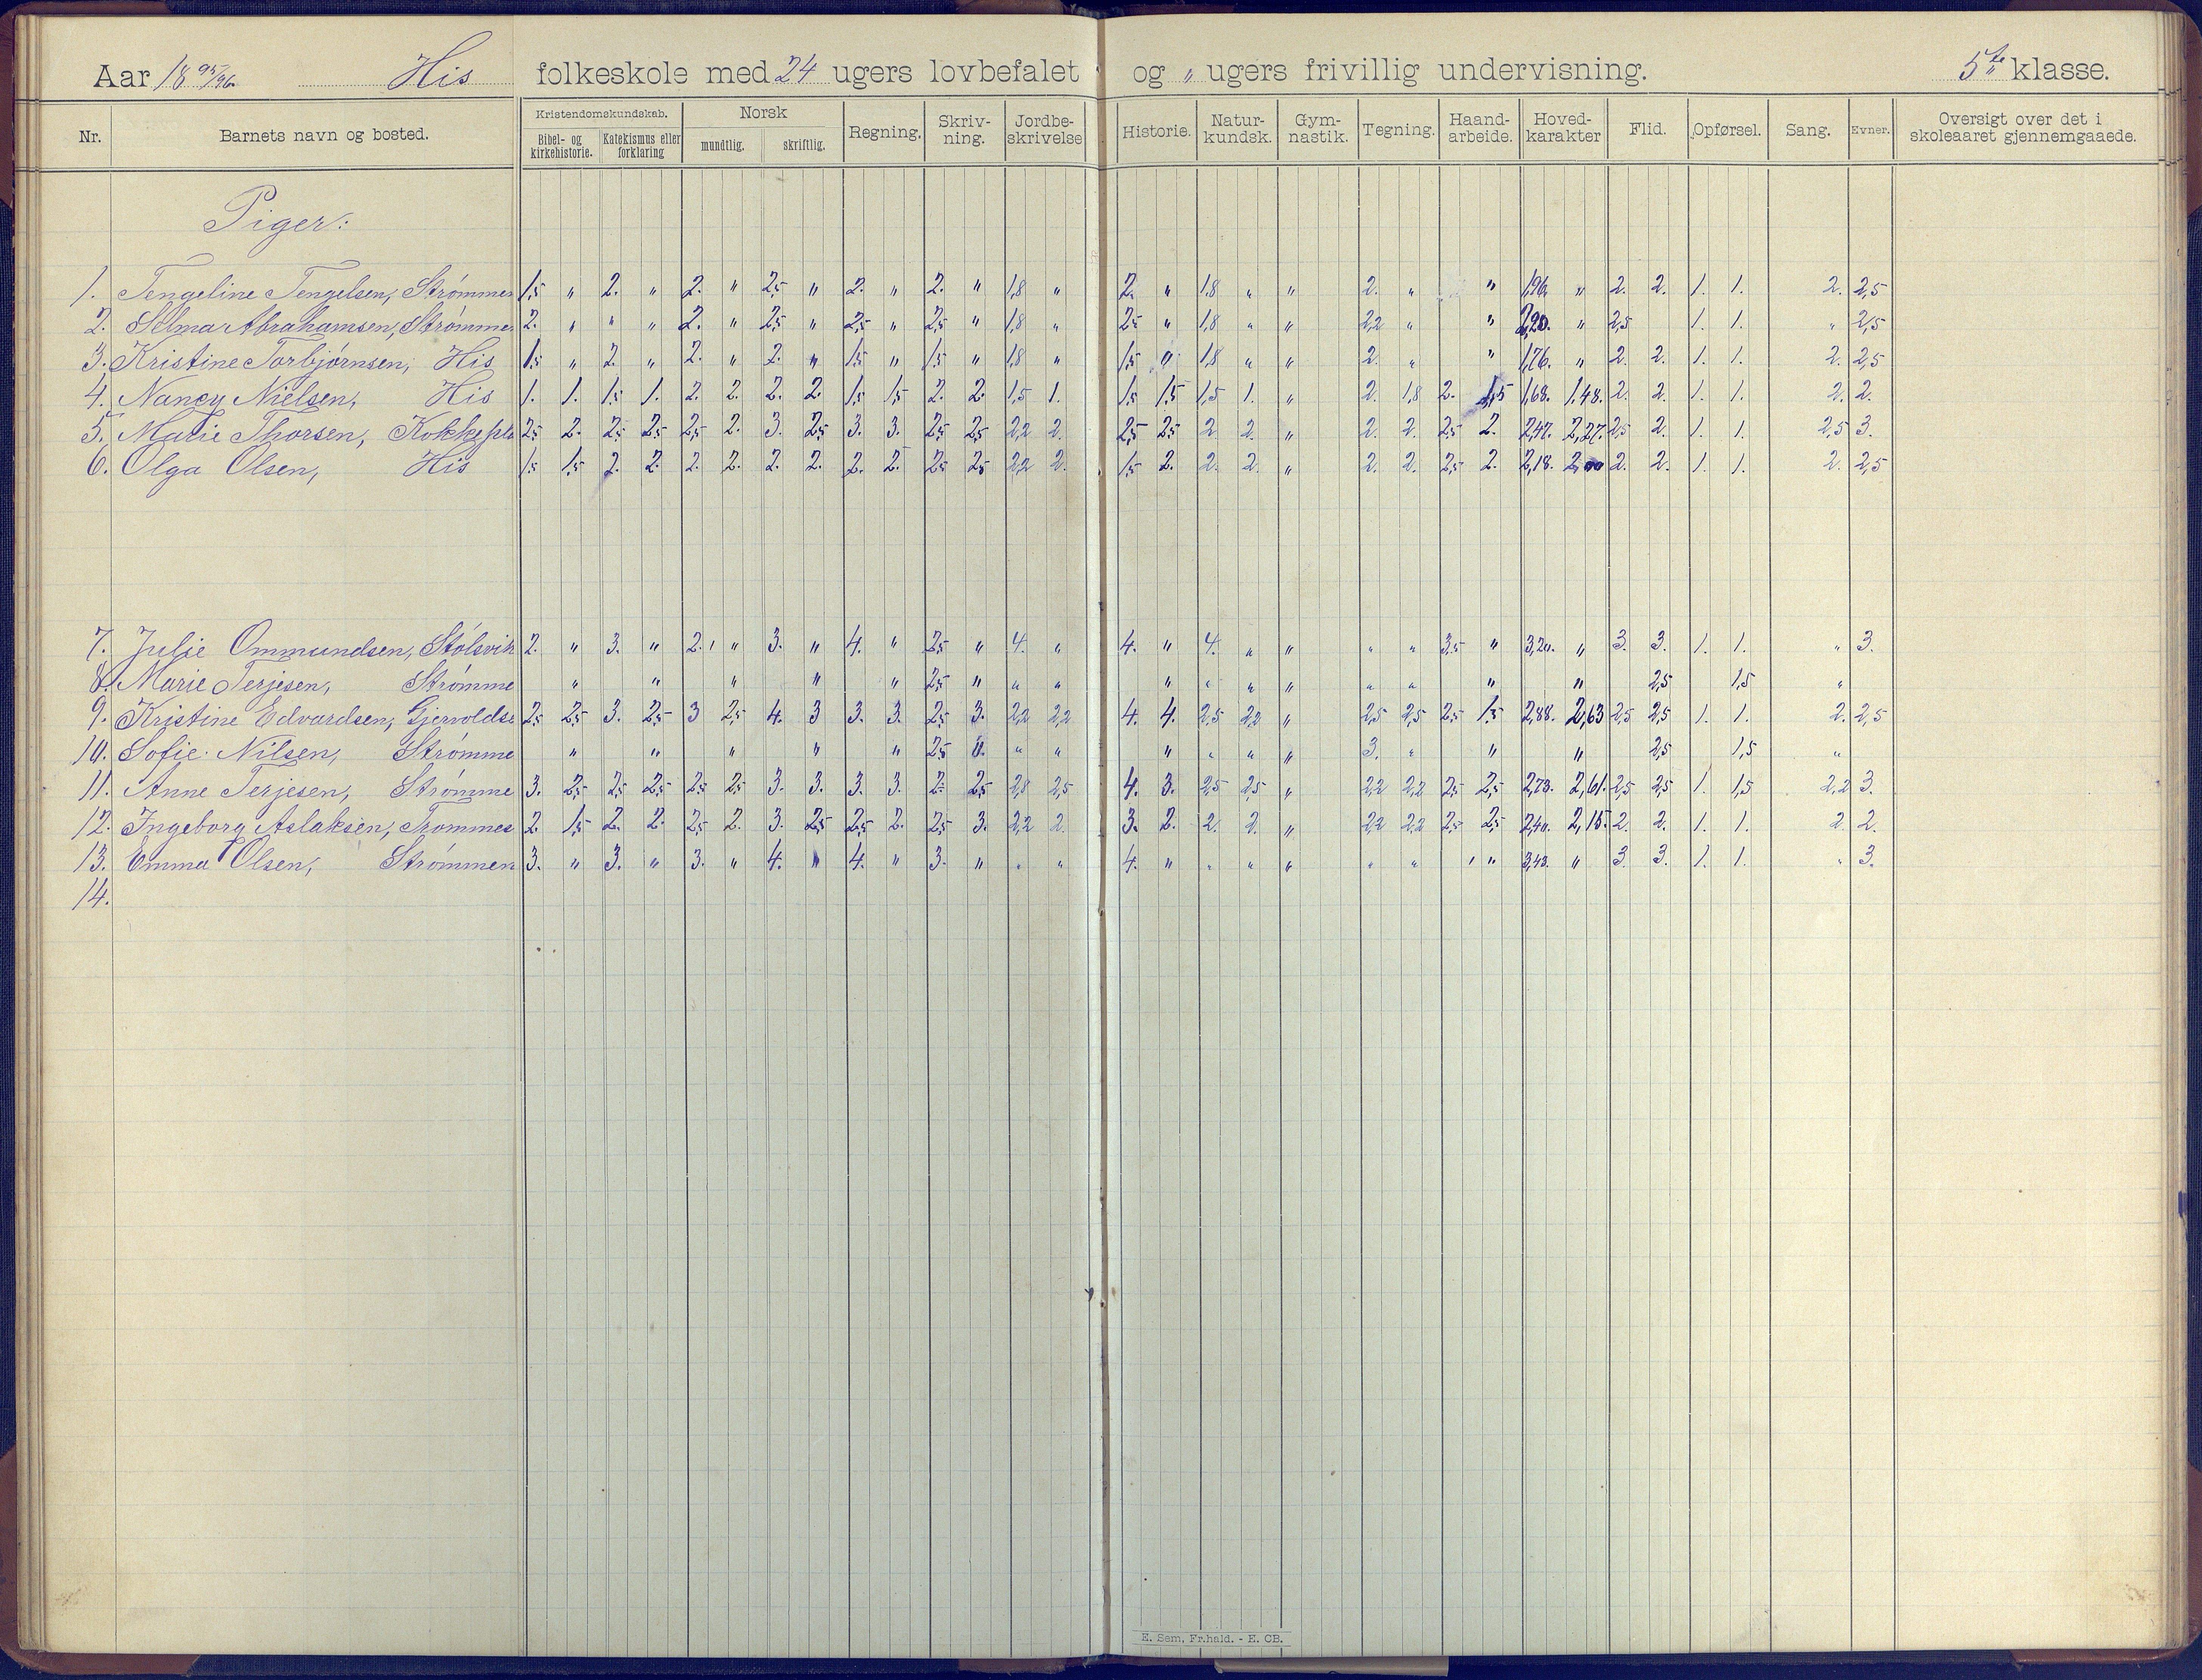 Aar 18 95/96. His folkeskole med 24 ugers lovbefalet og " ugers frivillig undervisning. 5te klasse.
Nr. Barnets navn og bosted. Kristendomskundskab. Bibel- og kirkehistorie. Katekismus eller forklaring Norsk mundtlig. skriftlig. Regning. Skriv-ning. Jordbe-skrivelse Historie. Natur-kundsk. Gym-nastik. Tegning. Haand-arbeide. Hoved-karakter Flid. Opførsel. Sang. Evner. Oversigt over det i skoleaaret gjennemgaaede.
Piger:
1. Tengeline Tengelsen, Strømmen 1,5 " 2. " 2. " 2,5 " 2. " 2. " 1,8 " 2. " 1,8 " " 2. " " 1,96. " 2. 2. 1. 1. 2. 2,5
2. Selma Abrahamsen, Strømmen 2. " " " 2. " 2,5 " 2,5 " 2,5 " 1,8 " 2,5 " 1,8 " " 2,2 " " 2,20. " 2,5 1. 1. " 2,5
3. Kristine Torbjørnsen, His 1,5 " 2. " 2. " 2. " 1,5 " 1,5 " 1,8 " 1,5 " 1,8 " " 2. " " 1,76. " 2. 2. 1. 1. 2. 2,5
4. Nancy Nielsen, His 1. 1. 1,5 1. 2. 2. 2. 2. 1,5 1,5 2. 2. 1,5 1. 1,5 1,5 1,5 1. " 2. 1,8 2. 1,5 1,68. 1.48. 2. 2. 1. 1. 2. 2.
5. Marie Thorsen, Kokkepl 2,5 2. 2,5 2,5 2,5 2. 3. 2,5 3. 3. 2,5 2,5 2,2 2. 2,5 2,5 2 2. " 2. 2. 2,5 2. 2,47. 2,27. 2,5 2. 1. 1. 2,5 3.
6. Olga Olsen, His 1,5 1,5 2. 2. 2. 2. 2. 2. 2. 2. 2,5 2,5 2,2 2. 1,5 2. 2. 2. " 2. 2. 2,5 2. 2,18. 2,00 2. 2. 1. 1. 2. 2,5
7. Julie Ommundsen, Stølsvik 2. " 3. " 2. " 3. " 4. " 2,5 " 4. " 4. " 4. " " " " 3,5 " 3,20. " 3. 3. 1. 1. " 3.
8. Marie Terjesen, Strømme " " " " " 2,5 " " " " " " " " " " " 2,5 1,5 "
9. Kristine Edvardsen, Gjervoldss 2,5 2,5 3. 2,5 3 2,5 4. 3 3. 3. 2,5 3. 2,2 2,2 4. 4. 2,5 2,2 " 2,5 2,5 2,5 1,5 2,88. 2,63 2,5 2,5 1. 1. 2. 2,5
10. Sofie Nilsen, Strømme " " " " " 2,5 " " " " " " " 3. " " " 2,5 1,5 "
11. Anne Terjesen, Strømme 3. 2,5 2,5 2,5 2,5 2,5 3. 3. 3. 3. 2. 2,5 2,8 2,5 4. 3. 2,5 2,5 " 2,2 2,2 2,5 2,5 2,73. 2,61. 2,5 2,5 1. 1,5 2,2 3.
12. Ingeborg Aslaksen, Trommes 2. 1,5 2. 2. 2,5 2. 3. 2,5 2,5 2. 2,5 3. 2,2 2. 3. 2. 2. 2. " 2,2 2,2 2,5 2,5 2,40. 2,15. 2. 2. 1. 1. 2. 2.
13. Emma Olsen, Strømmen 3. " 3. " 3. " 4. " 4. " 3. " " " 4. " " " " " " " " 3,43. " 3. 3. 1. 1. " 3.
14.
E. Sem, Fr.hald. - E. CB.